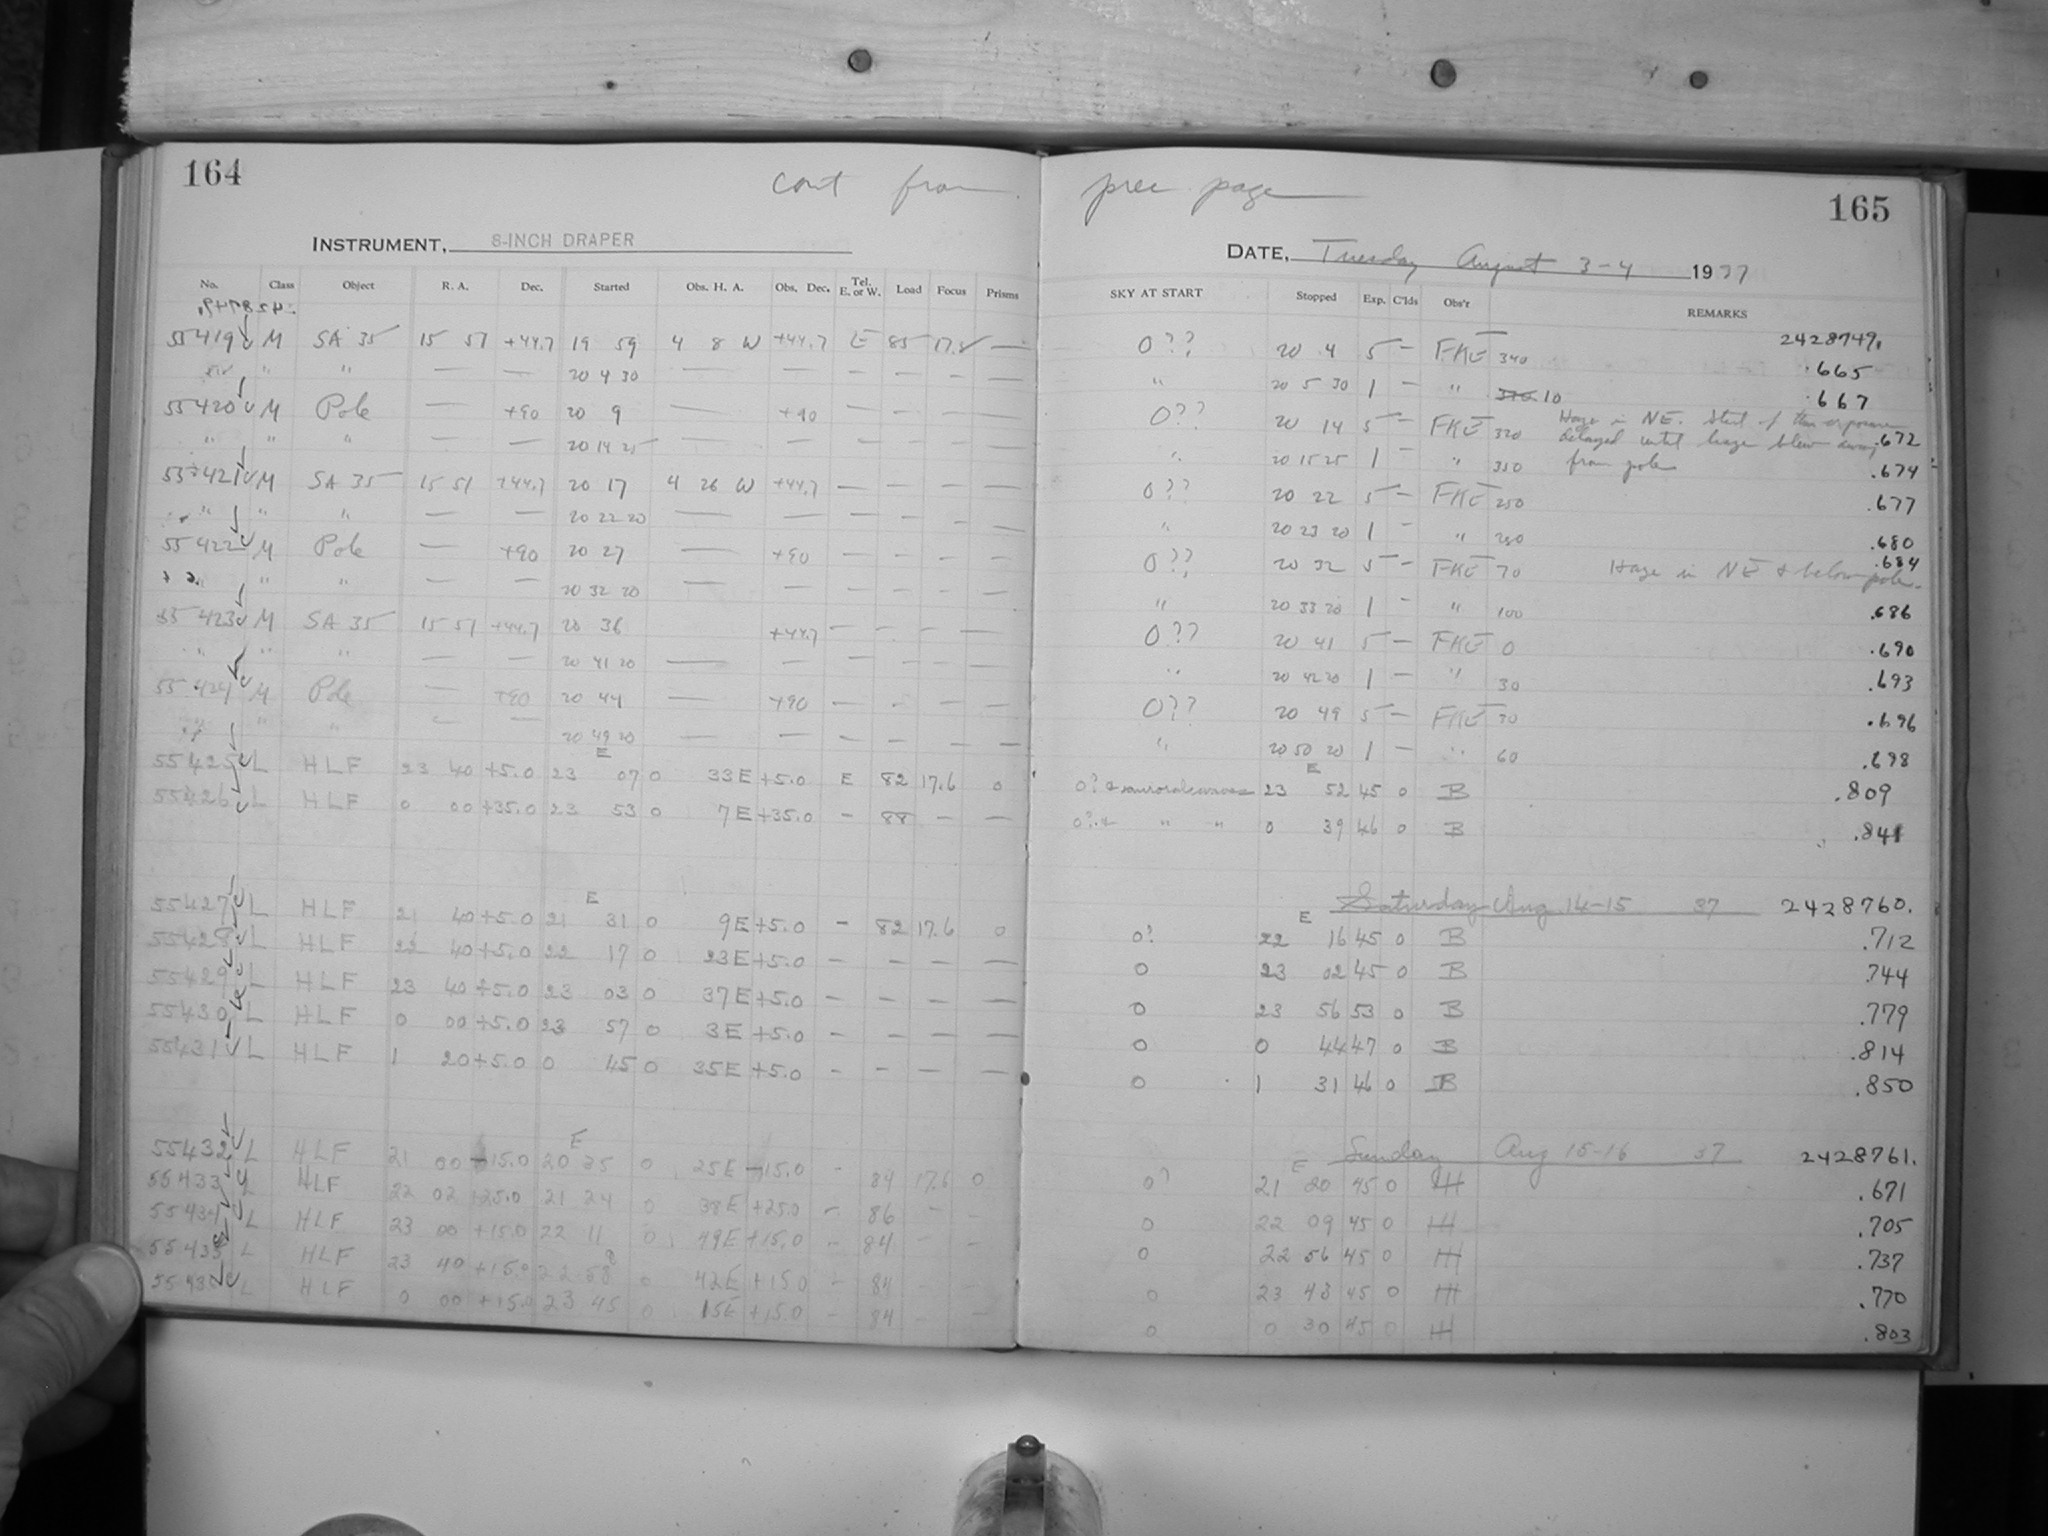 164
cont from
prec page
165
INSTRUMENT, 8-INCH DRAPER
DATE, Tuesday August 3-4 1937
No. Class Object R. A. Dec. Started Obs. H. A. Obs. Dec. Tel. E. or W. Load Focus Prisms
SKY AT START Stopped Exp. C'lds Obs'r REMARKS
2428749.
55419 M SA 35 15 51 +44.7 19 59 4 8 W +44.7 E 85 — 0?? 20 4 5 — FKE 340 .665
" " — — 20 4 30 — — — — — — " 20 5 30 1 — " 10 .667
55420 M Pole — +90 20 9 — +90 — — — — 0?? 20 14 5 — FKE 320 Haze in NE. Start of this exposure .672
" " " — — 20 14 25 — — — — — — " 20 15 25 1 — " 350 delayed until haze blew away from pole .674
55421 M SA 35 15 51 +44.7 20 17 4 26 W +44.7 — — — — 0?? 20 22 5 — FKE 250 .677
" " " — — 20 22 20 — — — — — — " 20 23 20 1 — " 280 .680
55422 M Pole — +90 20 27 — +90 — — — — 0?? 20 32 5 — FKE 70 Haze in NE & below pole. .684
" " " — — 20 32 20 — — — — — — " 20 33 20 1 — " 100 .686
55423 M SA 35 15 51 +44.7 20 36 +44.7 — — — — 0?? 20 41 5 — FKE 0 .690
" " " — — 20 41 20 — — — — — — " 20 42 20 1 — " 30 .693
55424 M Pole — +90 20 44 — +90 — — — — 0?? 20 49 5 — FKE 30 .696
" " " — — 20 49 20 — — — — — — " 20 50 20 1 — " 60 .698
55425 L HLF 23 40 +5.0 23 E 07 0 33E +5.0 E 82 17.6 0 0? & auroral 23 E 52 45 0 B .809
55426 L HLF 0 00 +35.0 23 53 0 7E +35.0 — 88 — — 0? & " " 0 39 46 0 B .841
Saturday Aug 14-15 37 2428760.
55427 L HLF 21 40 +5.0 21 E 31 0 9E +5.0 — 82 17.6 0 0? 22 E 16 45 0 B .712
55428 L HLF 22 40 +5.0 22 17 0 23E +5.0 — — — — 0 23 02 45 0 B .744
55429 L HLF 23 40 +5.0 23 03 0 37E +5.0 — — — — 0 23 56 53 0 B .779
55430 L HLF 0 00 +5.0 23 57 0 3E +5.0 — — — — 0 0 44 47 0 B .814
55431 L HLF 1 20 +5.0 0 45 0 35E +5.0 — — — — 0 1 31 46 0 B .850
Sunday Aug 15-16 37 2428761.
55432 L HLF 21 00 +15.0 20 E 35 0 25E +15.0 - 84 17.6 0 0? 21 E 20 45 0 .671
55433 L HLF 22 02 +25.0 21 24 0 38E +25.0 - 86 - - 0 22 09 45 0 .705
55434 L HLF 23 00 +15.0 22 11 0 49E +15.0 - 84 - - 0 22 56 45 0 .737
55435 L HLF 23 40 +15.0 22 58 0 42E +15.0 - 84 - - 0 23 43 45 0 .770
L HLF 0 00 +15.0 23 45 0 15E +15.0 - 84 - - 0 0 30 45 0 .803